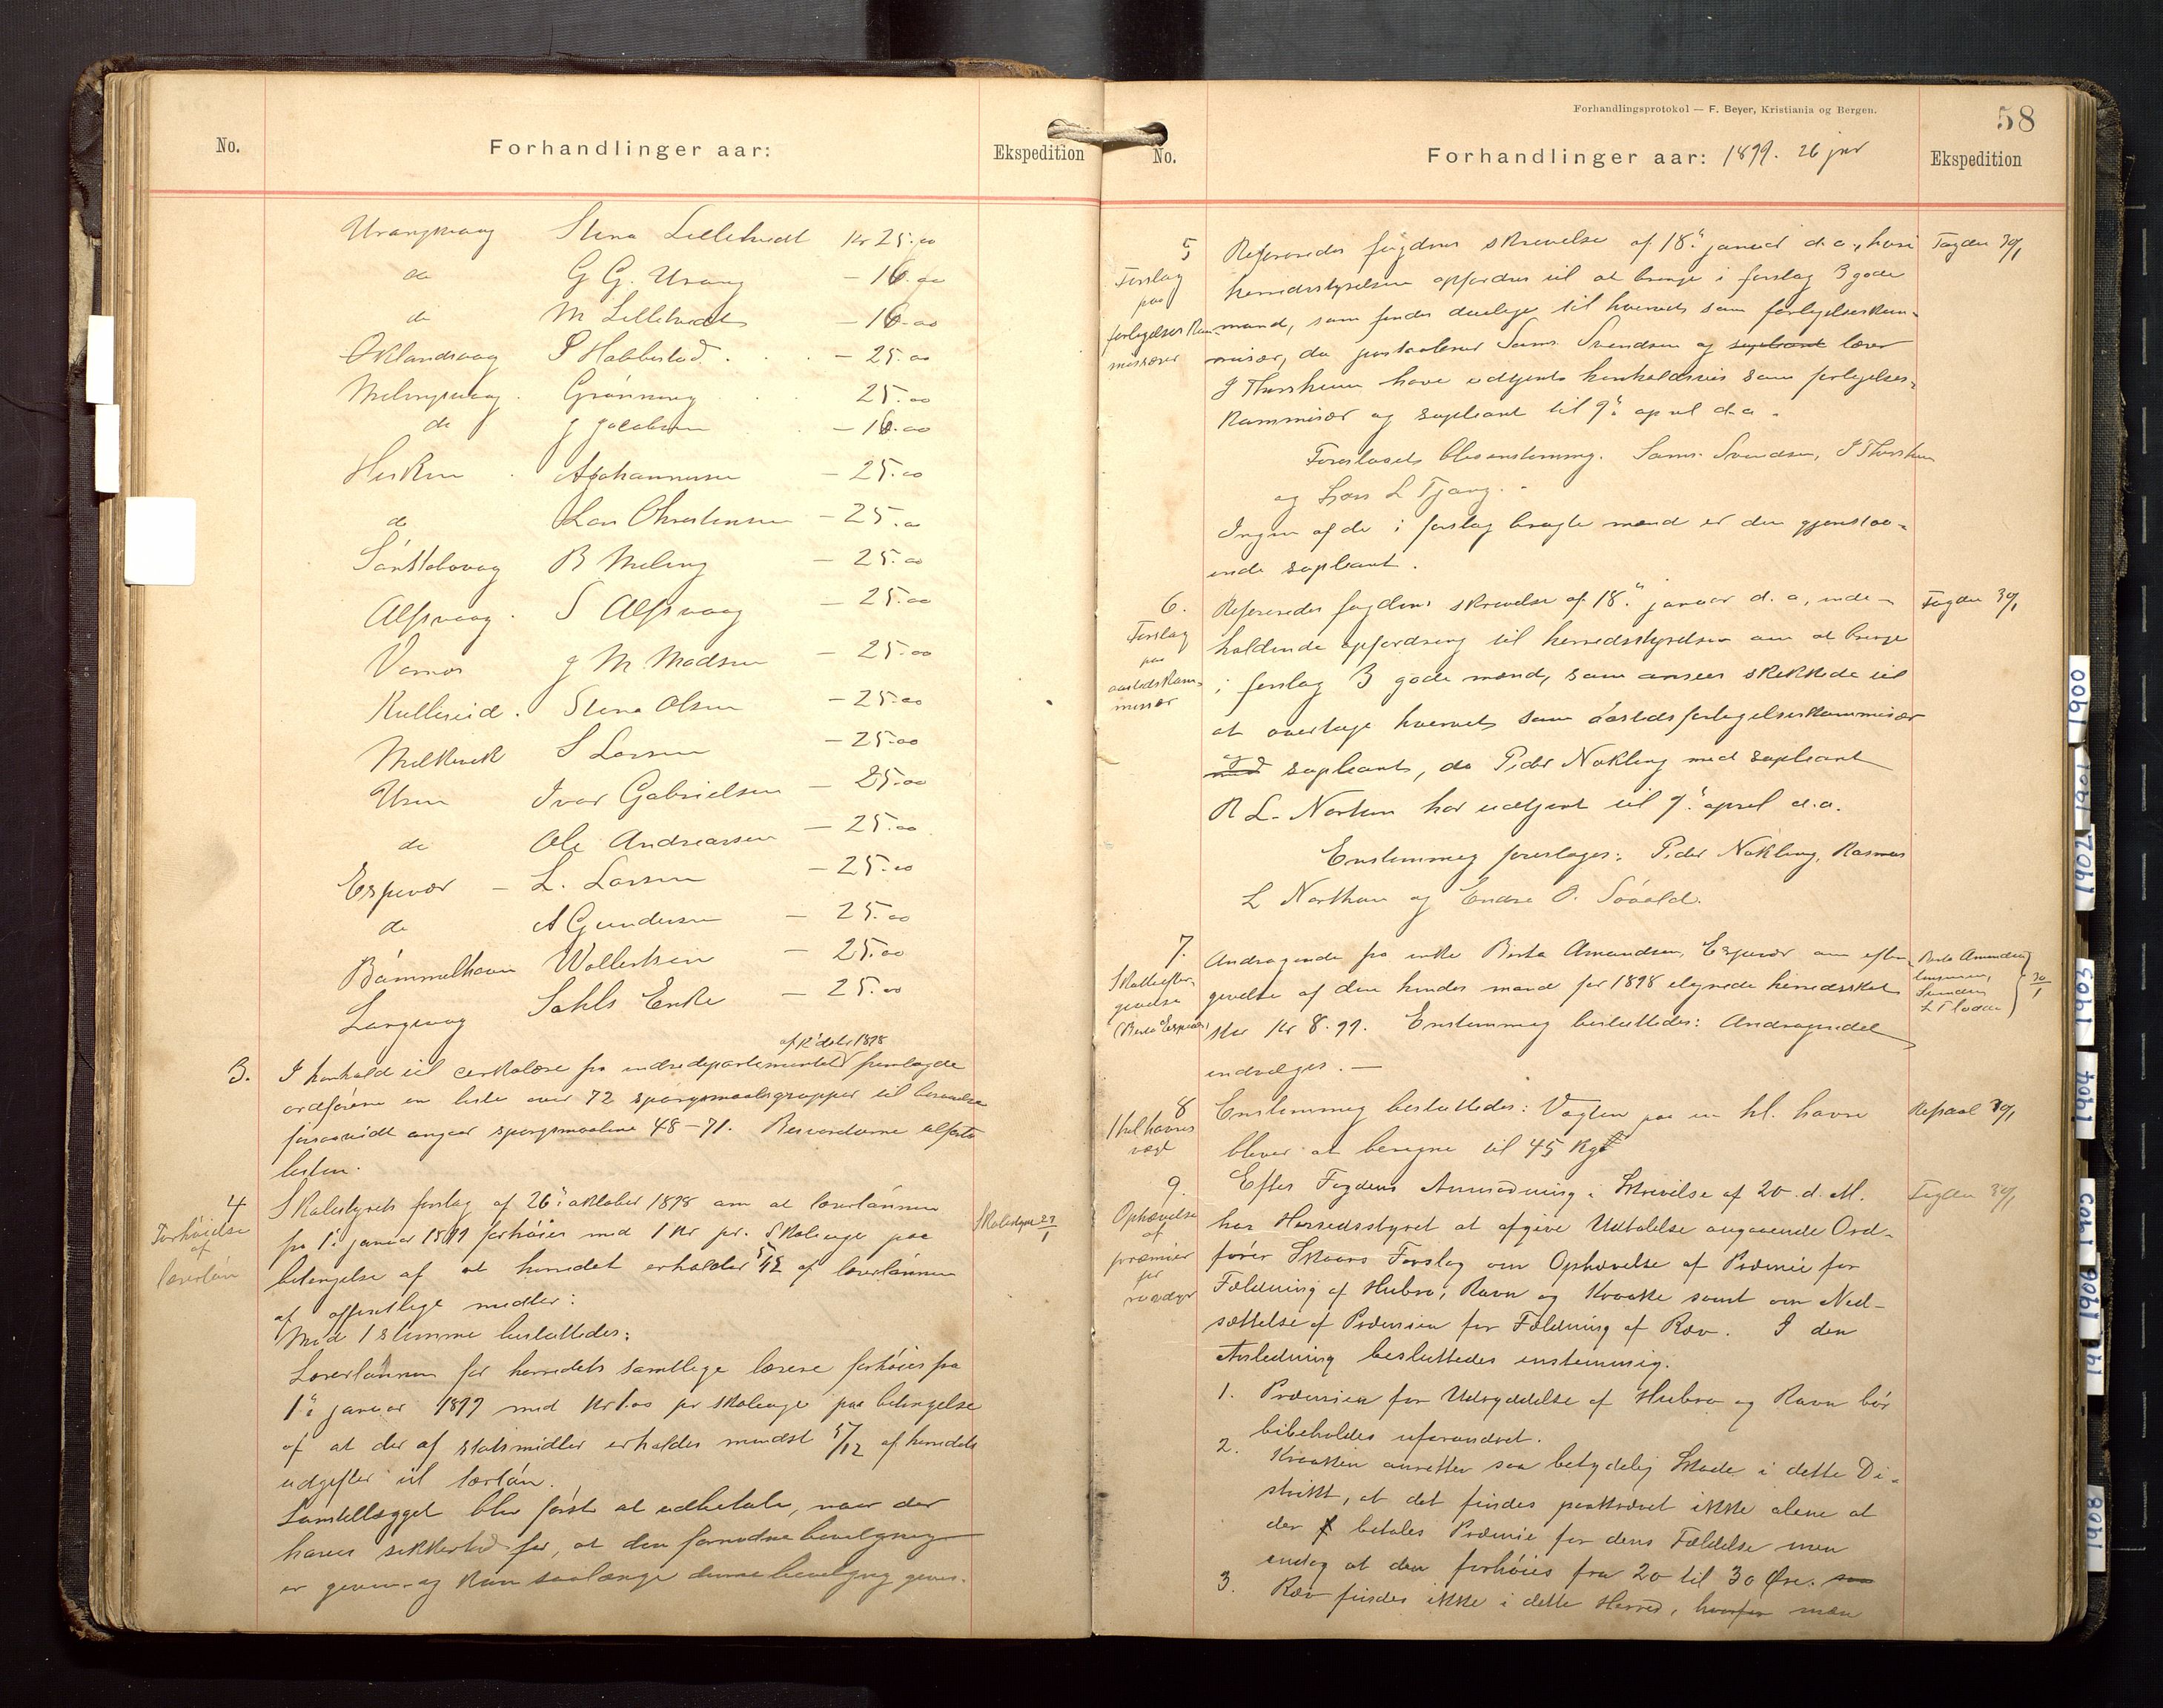 No.
Forhandlinger aar:
Ekspedition
Urangsvaag Stene Lilletvedt Kr 25.00
do G G. Urang – 16.00
do M Lilletvedt – 16.00
Oklandsvaag P Habbestad – 25.00
Melingsvaag Grønning 25.00
do J Jacobsen – 16.00
Hisken A Johannesen – 25.00
do Lars Christensen – 25.00
B Meling – 25.00
Alfsvaag S Alfsvaag – 25.00
Vornes J M. Madsen – 25.00
Kulleseid Stene Olsen – 25.00
Melkevik S Larsen – 25.00
Uren Ivar Gabrielsen – 25.00
do Ole Andreassen – 25.00
Espevær – L. Larsen – 25.00
do A Gundersen – 25.00
Bømmelhavn Wollertsen – 25.00
Langevaag Sahls Enke – 25.00
3.
I henhold til cirkulære fra indredepartementet fremlagde
ordføreren en liste over 72 spørgsmaalsgrupper til besvarelse
forsaavidt angaar spørgsmaalene 48–71. Besvarelserne
listen.
4
Forhøielse
af
lærerløn
Skolestyrets forslag af 26de oktober 1898 om at lærerlønnen
fra 1ste januar 1899 forhøies med 1 Kr pr. Skoleuge paa
betingelse af at herredet erholder 5/12 af lærerlønnen
af offentlige midler:
Med 1 stemme besluttedes:
Lærerlønnen for herredets samtlige lærere forhøies fra
1ste januar 1899 med Kr 1.00 pr skoleuge paa betingelse
af at der af statsmidler erholdes mindst 5/12 af herredets
udgifter til lærløn.
Løntillægget blir først at udbetale, naar der
haves sikkerhed for, at den fornødne bevilgning
er given og kun saalænge denne bevilgning gives.
Skolestyret 27/1
Forhandlingsprotokol — F. Beyer, Kristiania og Bergen.
58
No.
Forhandlinger aar: 1899. 26 jnr
Ekspedition
5
Forslag
paa
forligelseskom-
missærer
Refereredes fogdens skrivelse af 18de januar d.a., hvori
herredsstyrelsen opfordres til at bringe i forslag 3 gode
mænd, som findes duelige til hvervet som forligelseskom-
misær, da postaabner Sams. Svendsen og suppleant lærer
J Thorsheim have udtjent henholdsvis som forligelses-
kommisær og supleant til 9de april d.a.
Foresloges enstemmig: Sams. Svendsen, J Thorsheim
og Lars L Tjong.
Ingen af de i forslag bragte mænd er den gjenstaa-
ende supleant.
Fogden 30/1
6.
Forslag
paa
aastedskom-
missær
Refereredes fogdens skrivelse af 18de januar d. a, inde-
holdende opfordring til herredsstyrelsen om at bringe
i forslag 3 gode mænd, som ansees skikkede til
at overtage hvervet som aastedsforligelseskommisær
med og supleant, da Peder Nøkling med supleant
R L. Northun har udtjent til 9de april d.a.
Enstemmig foresloges: Peder Nøkling, Rasmus
L Northun og Endre O. Søvold.
Fogden 30/1
7.
Skatteefter-
givelse
(Berta Espevær)
Andragende fra enke Berta Amundsen, Espevær om efter-
givelse af den hendes mand for 1898 ilignede herredsskat
stor Kr 8.99. Enstemmig besluttedes: Andragendet
indvilges. —
Berta Amundsen
30/1
8
1 hl havres
vægt
Enstemmig besluttedes: Vægten paa en hl. havre
bliver at beregne til 45 Kg
30/1
9.
Ophævelse
af
præmier
for
rovdyr
Efter Fogdens Anmodning i Skrivelse af 20. d. M.
har Herredsstyret at afgive Udtalelse angaaende Ord-
fører Skaars Forslag om Ophævelse af Præmie for
Fældning af Hubro, Ravn og Kraake samt om Ned-
sættelse af Præmien for Fældning af Ræv. I den
Anledning besluttedes enstemmig.
1. Præmien for Udryddelse af Hubro og Ravn bør
bibeholdes uforandret.
2. Kraaken anretter saa betydelig Skade i dette Di-
strikt, at det findes paakrævet ikke alene at
der betales Præmie for dens Fældelse men
endog at den forhøies fra 20 til 30 Øre.
3. Ræv findes ikke i dette Herred, hvorfor man
Fogden 30/1
1900
1901
1902
1903
1904
1905
1906
1908